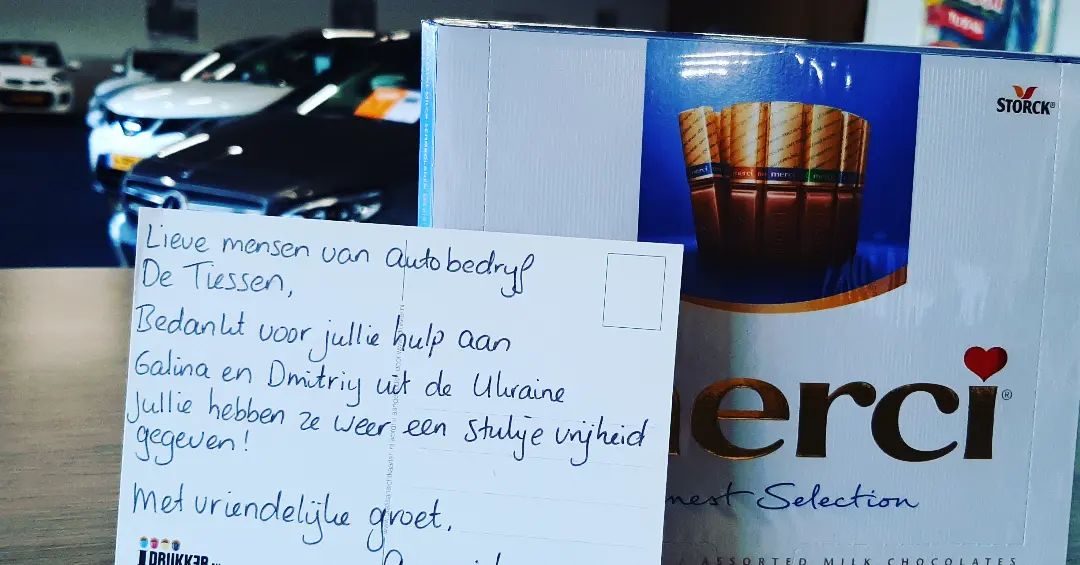 Lieve mensen van autobedrijf
De Tiessen,
Bedankt voor jullie hulp aan
Galina en Dmitriy uit de Ukraine
Jullie hebben ze weer een stukje vrijheid
gegeven!
Met vriendelijke groet,
DRUKK3R
STORCK®
merci
erci®
nest Selection
ASSORTED MILK CHOCOLATES